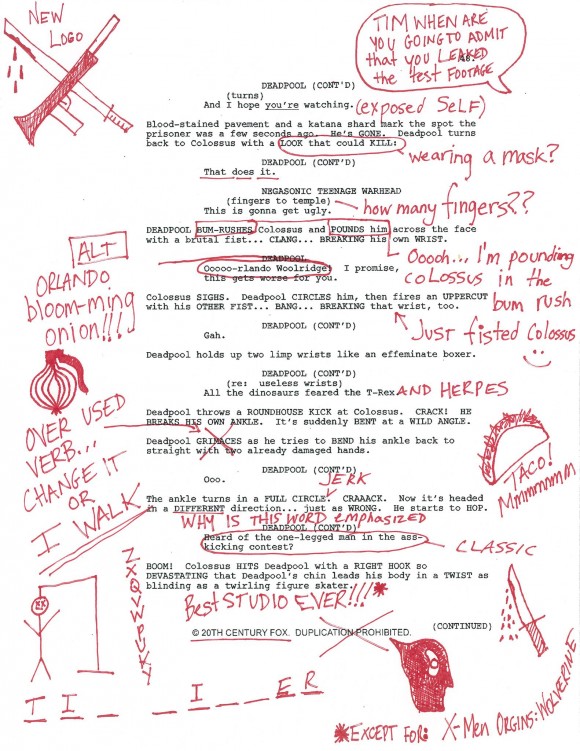 NEW
LOGO
TIM WHEN ARE
YOU GOING TO ADMIT
that you LEAKED
the test FOOTAGE
DEADPOOL (CONT'D)
(turns)
And I hope you're watching.
(exposed SELF)
Blood-stained pavement and a katana shard mark the spot the
prisoner was a few seconds ago. He's GONE. Deadpool turns
back to Colossus with a LOOK that could KILL:
wearing a mask?
DEADPOOL (CONT'D)
That does it.
NEGASONIC TEENAGE WARHEAD
(fingers to temple)
This is gonna get ugly.
how many fingers??
DEADPOOL BUM-RUSHES Colossus and POUNDS him across the face
with a brutal fist... CLANG... BREAKING his OWN WRIST.
Ooooh... I'm pounding
COLOSSUS in the
bum rush
DEADPOOL
Ooooo-rlando Woolridge! I promise,
this gets worse for you.
ALT
ORLANDO
bloom-ming
onion!!!!
Colossus SIGHS. Deadpool CIRCLES him, then fires an UPPERCUT
with his OTHER FIST... BANG... BREAKING that wrist, too.
Just fisted Colossus
DEADPOOL (CONT'D)
Gah.
Deadpool holds up two limp wrists like an effeminate boxer.
DEADPOOL (CONT'D)
(re: useless wrists)
All the dinosaurs feared the T-Rex
AND HERPES
Deadpool throws a ROUNDHOUSE KICK at Colossus. CRACK! HE
BREAKS HIS OWN ANKLE. It's suddenly BENT at a WILD ANGLE.
Deadpool GRIMACES as he tries to BEND his ankle back to
straight with two already damaged hands.
OVER USED
VERB...
CHANGE IT
OR
I WALK
TACO!
Mmmmmmmm
DEADPOOL (CONT'D)
Ooo.
JERK
The ankle turns in a FULL CIRCLE. CRAAACK. Now it's headed
in a DIFFERENT direction... just as WRONG. He starts to HOP.
WHY IS THIS WORD emphasized
DEADPOOL (CONT'D)
Heard of the one-legged man in the ass-
kicking contest?
CLASSIC
BOOM! Colossus HITS Deadpool with a RIGHT HOOK so
DEVASTATING that Deadpool's chin leads his body in a TWIST as
blinding as a twirling figure skater.
Best STUDIO EVER!!!*
© 20TH CENTURY FOX. DUPLICATION PROHIBITED.
(CONTINUED)
T I _ _ I _ _ _ E R
*EXCEPT FOR: X-Men ORGINS: WOLVERINE